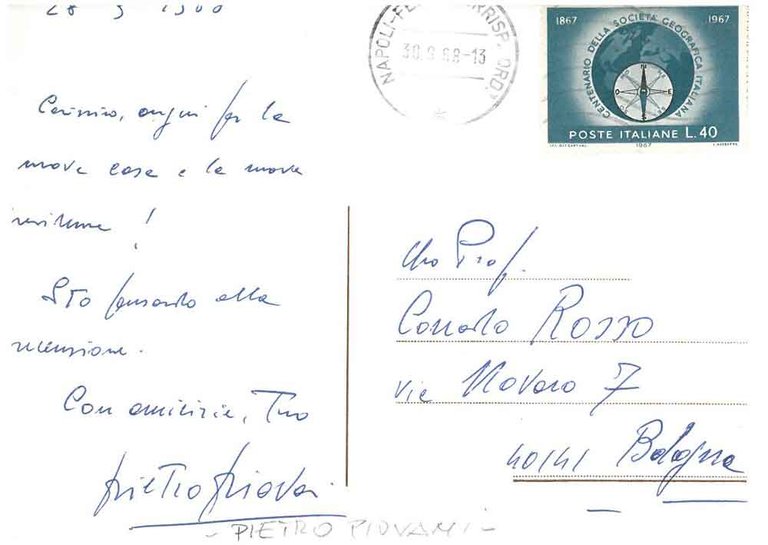 28 9 1968
Carissimo, auguri per la
nuova casa e la nuova
!
Sto pensando alla
recensione.
Con amicizia, Tuo
Pietro Piovani
- PIETRO PIOVANI -
NAPOLI-FE CORRISP. ORD.
30.9.68-13
1867 1967
CENTENARIO DELLA SOCIETÀ GEOGRAFICA ITALIANA
POSTE ITALIANE L. 40
1967
Ch.o Prof.
Corrado Rosso
via Novaro 7
40141 Bologna